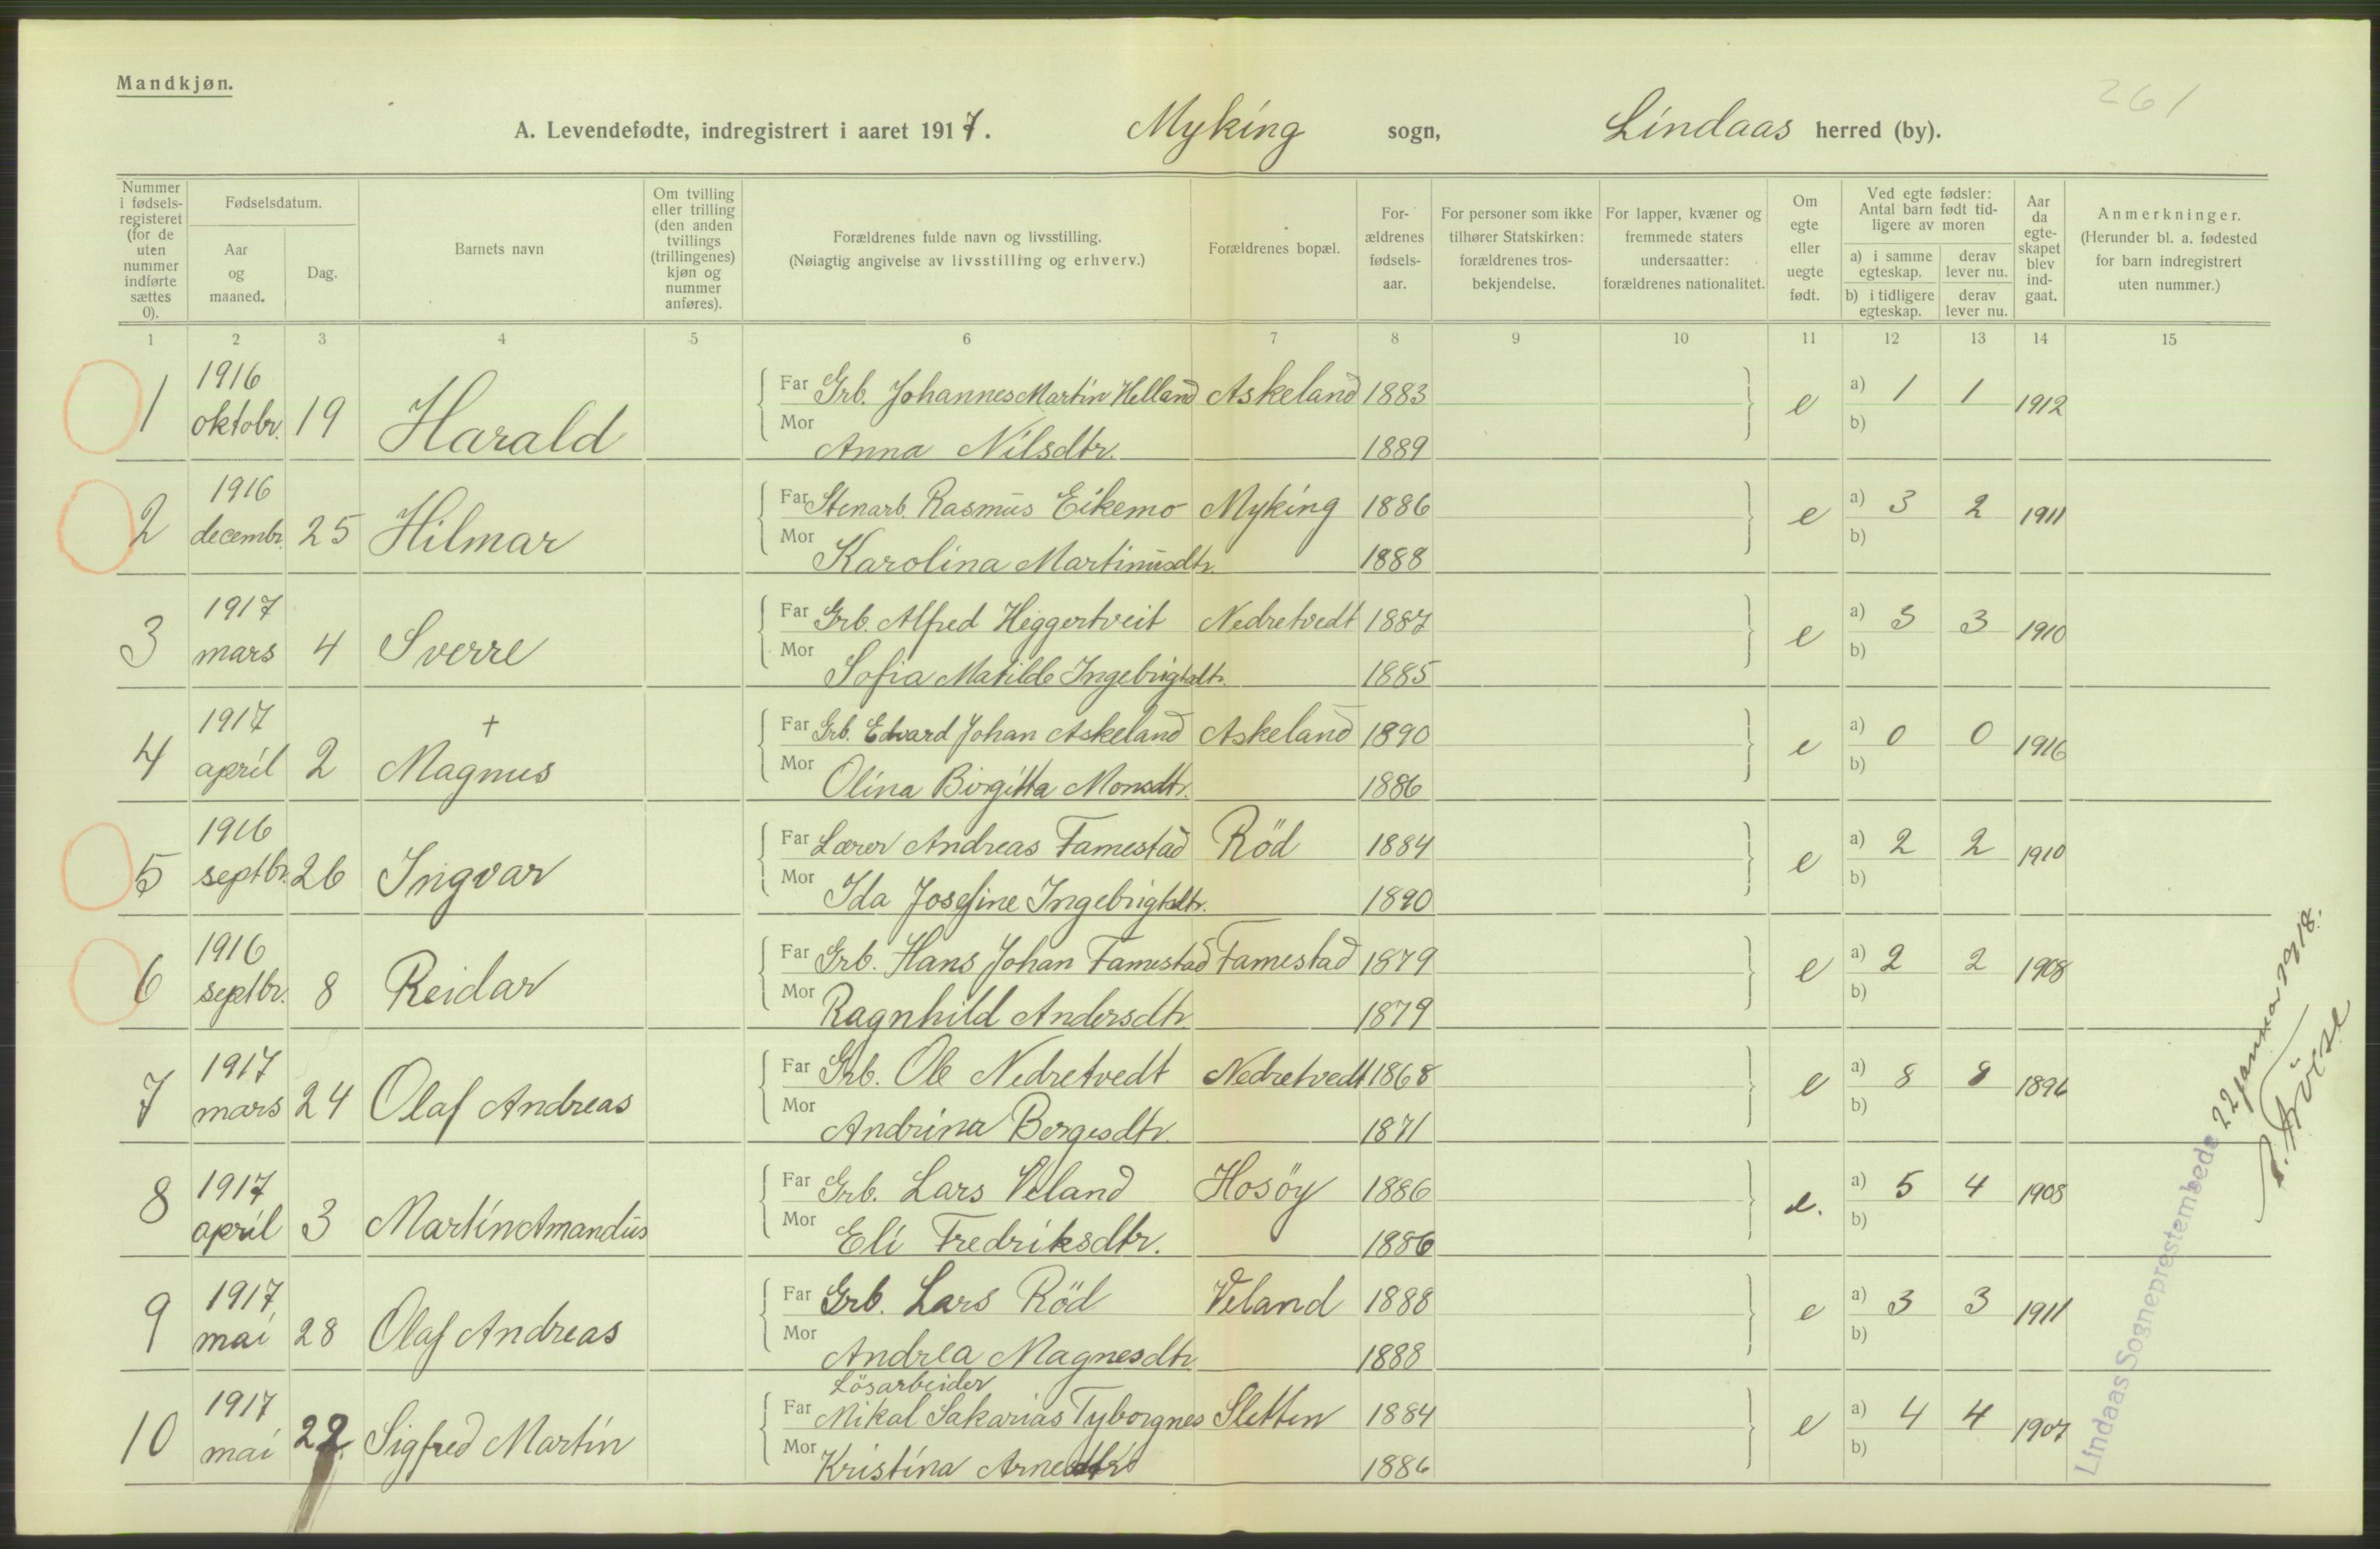 261
Mandkjøn.
A. Levendefødte, indregistrert i aaret 1917. Myking sogn, Lindaas herred (by).
Nummer i fødsels-registeret (for de uten nummer indførte sættes 0).
Fødselsdatum.
Aar og maaned.
Dag.
Barnets navn
Om tvilling eller trilling (den anden tvillings (trillingenes) kjøn og nummer anføres).
Forældrenes fulde navn og livsstilling.
(Nøiagtig angivelse av livsstilling og erhverv.)
Forældrenes bopæl.
For-ældrenes fødsels-aar.
For personer som ikke tilhører Statskirken: forældrenes tros-bekjendelse.
For lapper, kvæner og fremmede staters undersaatter: forældrenes nationalitet.
Om egte eller uegte født.
Ved egte fødsler: Antal barn født tid-ligere av moren
a) i samme egteskap.
derav lever nu.
b) i tidligere egteskap.
derav lever nu.
Aar da egte-skapet blev ind-gaat.
Anmerkninger.
(Herunder bl. a. fødested for barn indregistrert uten nummer.)
1 2 3 4 5 6 7 8 9 10 11 12 13 14 15
1 1916 oktobr. 19 Harald Far Grb. Johannes Martin Helland Askeland 1883 e a) 1 1 1912
Mor Anna Nilsdtr. 1889 b)
2 1916 decembr. 25 Hilmar Far Stenarb. Rasmus Eikemo Myking 1886 e a) 3 2 1911
Mor Karolina Martinusdtr. 1888 b)
3 1917 mars 4 Sverre Far Grb. Alfred Heggertveit Nedretvedt 1887 e a) 3 3 1910
Mor Sofia Matilde Ingebrigtsdtr. 1885 b)
4 1917 april 2 + Magnus Far Grb. Edvard Johan Askeland Askeland 1890 e a) 0 0 1916
Mor Olina Birgitta Monsdtr. 1886 b)
5 1916 septbr. 26 Ingvar Far Lærer Andreas Famestad Röd 1884 e a) 2 2 1910
Mor Ida Josefine Ingebrigtsdtr. 1890 b)
6 1916 septbr. 8 Reidar Far Grb. Hans Johan Famestad Famestad 1879 e a) 2 2 1908
Mor Ragnhild Andersdtr. 1879 b)
7 1917 mars 24 Olaf Andreas Far Grb. Ole Nedretvedt Nedretvedt 1868 e a) 8 8 1896
Mor Andrina Bergesdtr. 1871 b)
8 1917 april 3 Martin Amandus Far Grb. Lars Veland Hosöy 1886 e. a) 5 4 1908
Mor Eli Fredriksdtr. 1886 b)
9 1917 mai 28 Olaf Andreas Far Grb. Lars Röd Veland 1888 e a) 3 3 1911
Mor Andrea Magnesdtr. 1888 b)
Lösarbeider
10 1917 mai 22. Sigfred Martin Far Mikal Sakarias Tyborgnes Sletten 1884 e a) 4 4 1907
Mor Kristina Arnesdtr. 1886 b)
Lindaas Sogneprestembede 22 januar 1918.